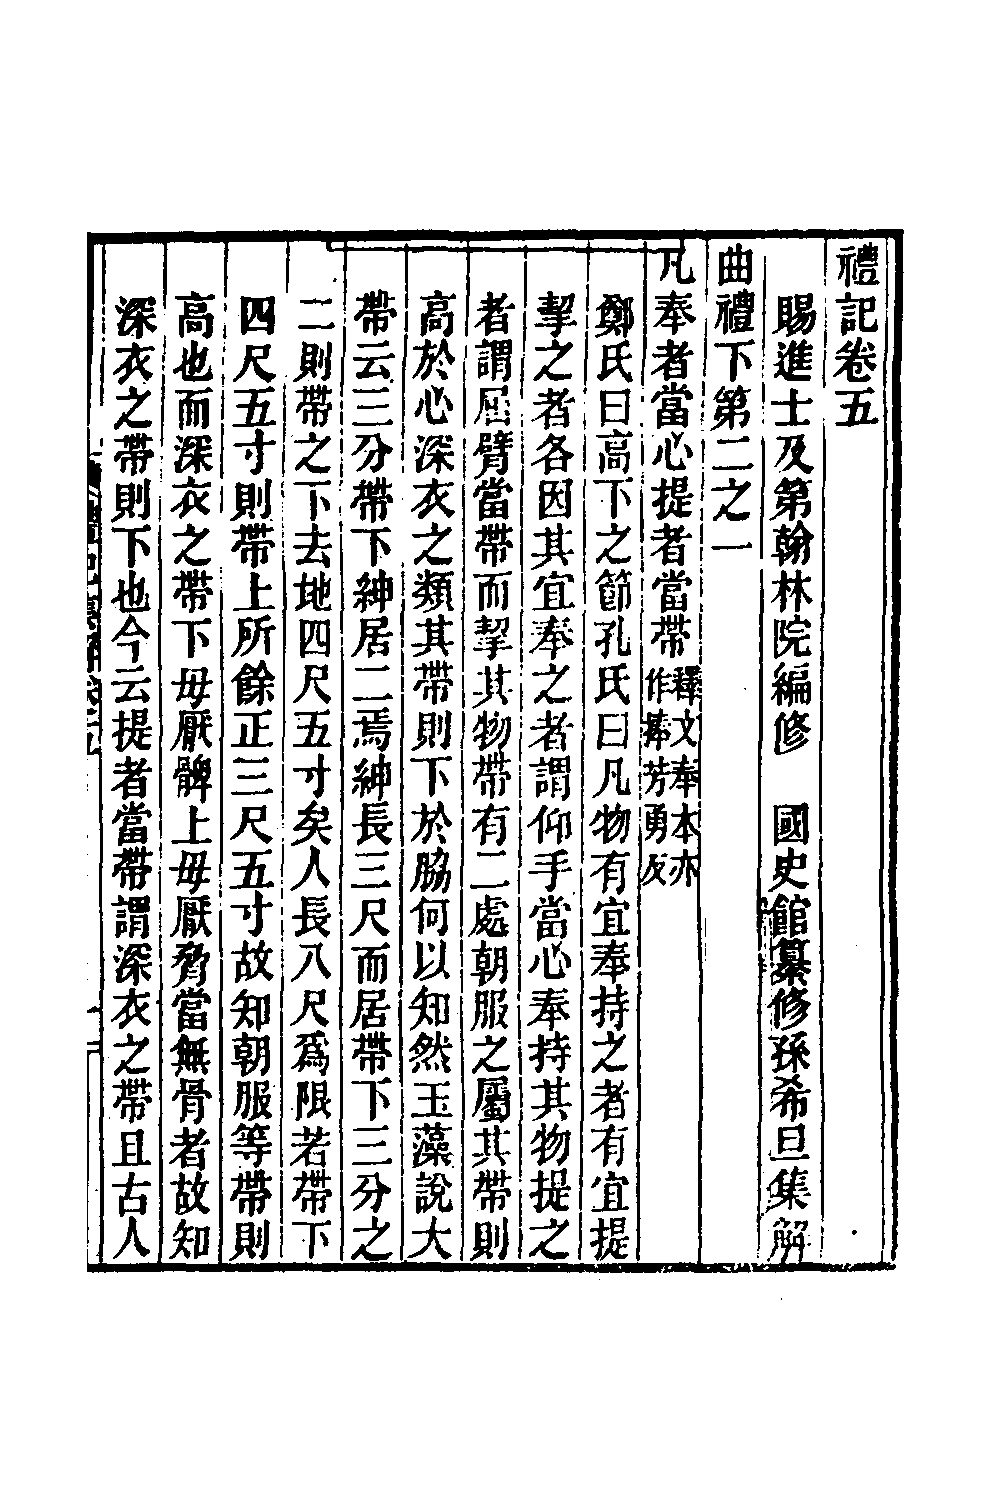 禮記卷五
賜進士及第翰林院編修　國史館纂修孫希旦集解
曲禮下第二之一
凡奉者當心提者當帶釋文奉本亦作捧芳勇反
鄭氏曰高下之節孔氏曰凡物有宜奉持之者有宜提
挈之者各因其宜奉之者謂仰手當心奉持其物提之
者謂屈臂當帶而挈其物帶有二處朝服之屬其帶則
高於心深衣之類其帶則下於脇何以知然玉藻說大
帶云三分帶下紳居二焉紳長三尺而居帶下三分之
二則帶之下去地四尺五寸矣人長八尺爲限若帶下
四尺五寸則帶上所餘正三尺五寸故知朝服等帶則
高也而深衣之帶下毋厭髀上毋厭脅當無骨者故知
深衣之帶則下也今云提者當帶謂深衣之帶且古人